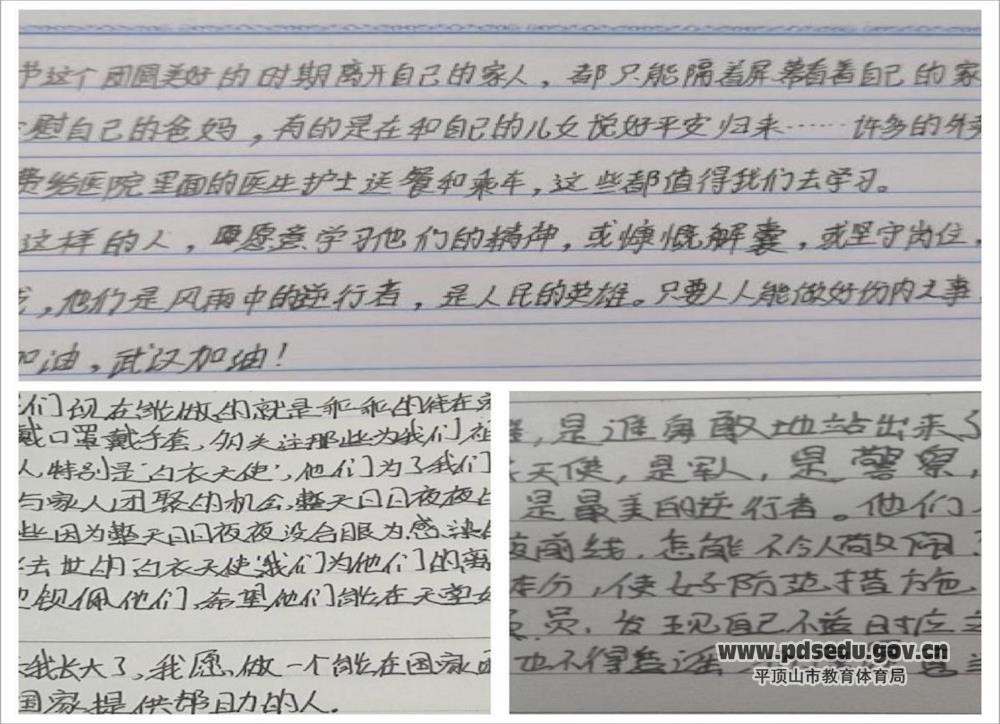 节这个团圆美好的时期离开自己的家人，都只能隔着屏幕看着自己的家
慰自己的爸妈，有的是在和自己的儿女说好平安归来……许多的外卖
费给医院里面的医生护士送餐和乘车，这些都值得我们去学习。
这样的人，愿意学习他们的精神，或慷慨解囊，或坚守岗位，
，他们是风雨中的逆行者，是人民的英雄。只要人人能做好份内之事
加油，武汉加油！
们现在能做的就是乖乖的待在家
戴口罩戴手套，多关注那些为我们祖
人，特别是“白衣天使”，他们为了我们
与家人团聚的机会，整天日日夜夜
些因为整天日日夜夜没合眼为感染
去世的“白衣天使”我们为他们的离
钦佩他们，希望他们能在天堂
我长大了，我愿做一个能在国家
国家提供帮助的人.
，是谁勇敢地站出来了
天使，是军人，是警察，
是最美的逆行者。他们
前线，怎能不令人敬佩
本分，使好子防范措施
员，发现自己不适时应
也不得造谣
www.pdsedu.gov.cn
平顶山市教育体育局